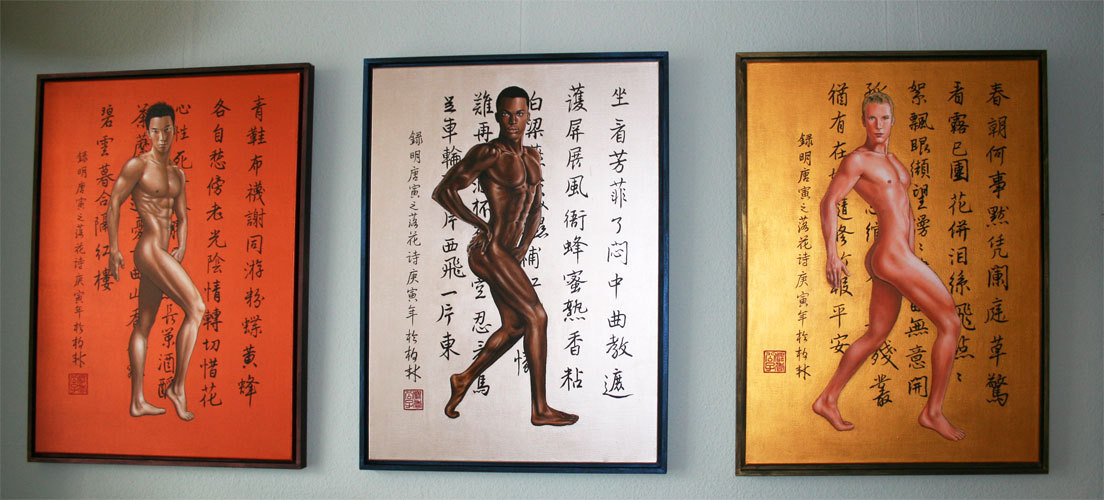 青鞋布襪謝同游粉蝶黃蜂
各自愁傍老光陰情轉切惜花
心性死 長策酒酹
憂 曲山香
碧雲暮合隔紅樓
錄明唐寅之落花诗庚寅年於柏林
坐看芳菲了悶中曲教遮
護屏展風衙蜂蜜熟香粘
白梁燕 補
難再 杯 空忍 馬
足車輪 片西飛一片東
錄明唐寅之落花诗庚寅年於柏林
春朝何事默凭闌庭草驚
看露已團花併泪絲飛點〻
絮飄眼纈望漫〻 無意開
殘叢
猶有在 隨修竹報平安
錄明唐寅之落花诗庚寅年於柏林